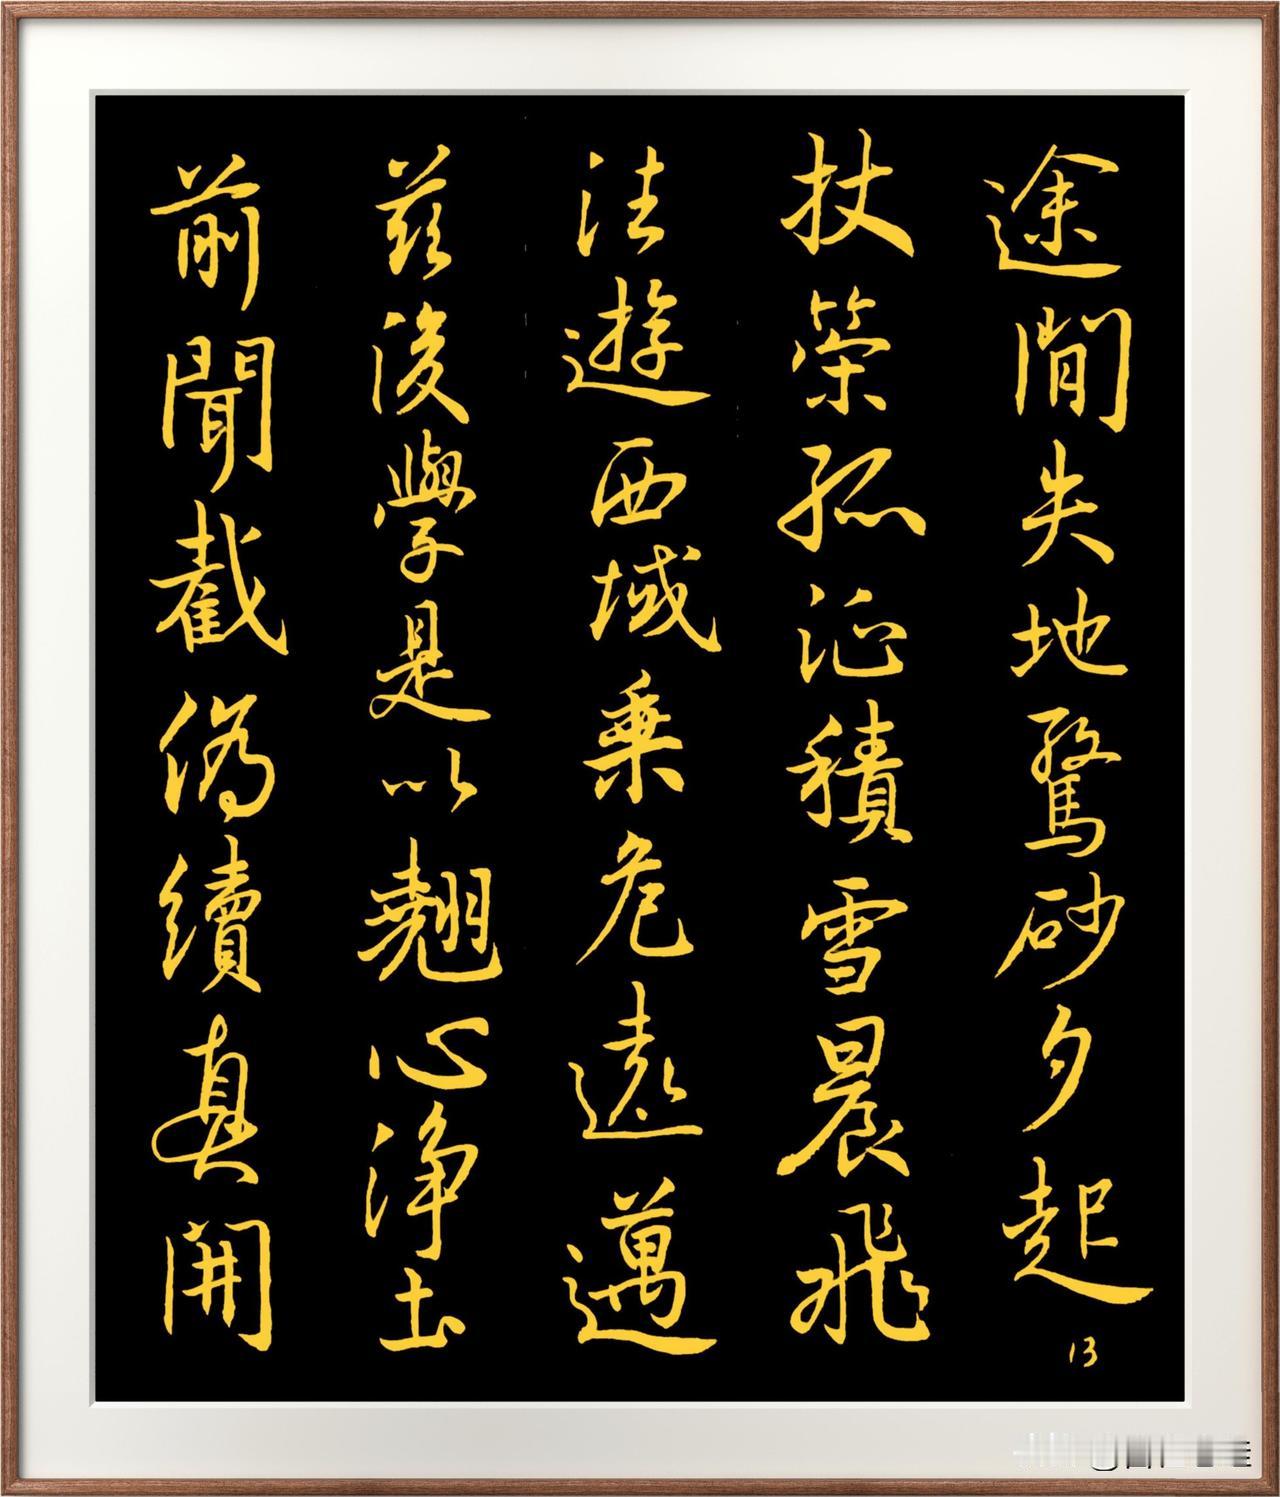 前聞截偽續真開
茲後學是以翹心淨土
法遊西域乘危遠邁
杖策孤征積雪晨飛
途閒失地驚砂夕起
13